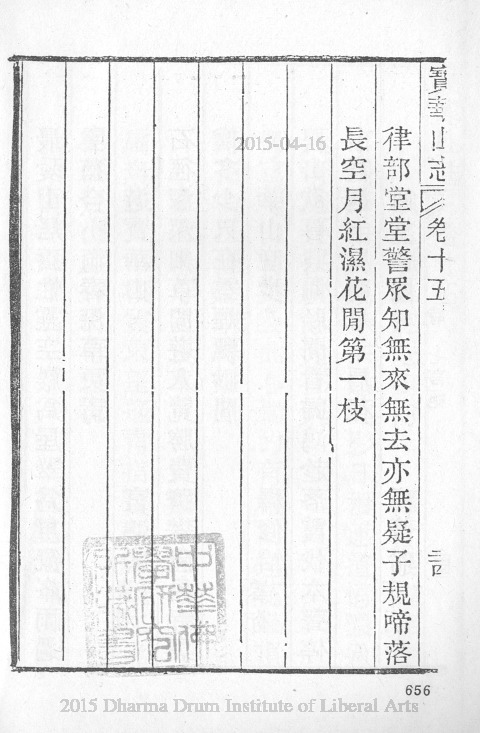 寶華山志 卷十五
律部堂堂警眾知無來無去亦無疑子規啼落
長空月紅濕花閒第一枝
2015-04-16
中華佛
學研究
所藏書
656
2015 Dharma Drum Institute of Liberal Arts